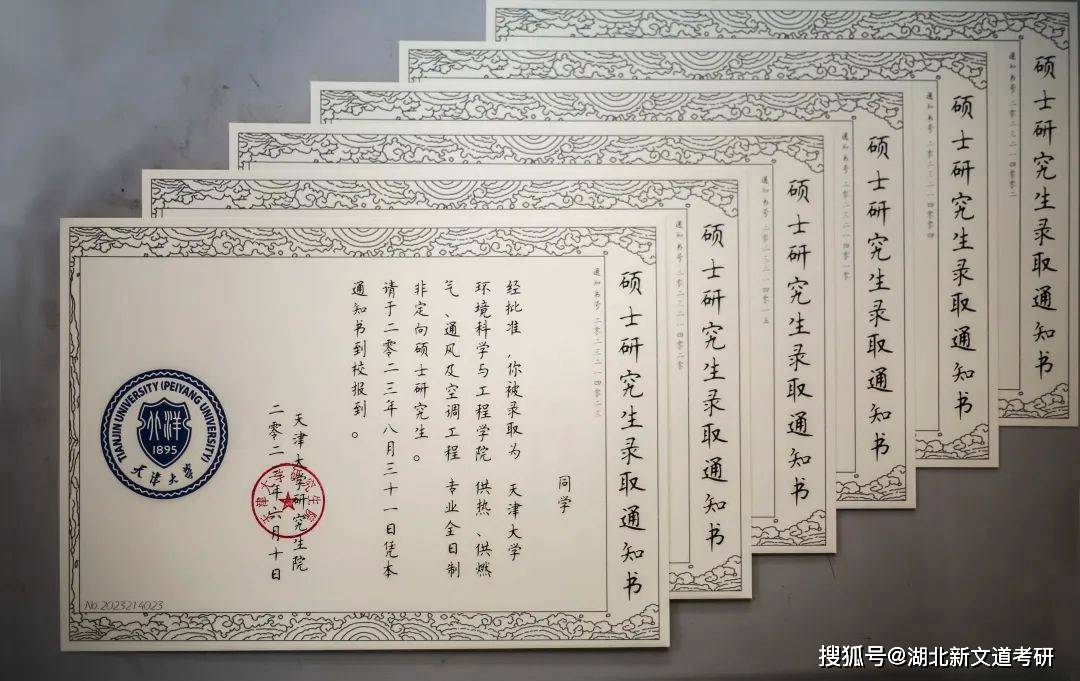 硕士研究生录取通知书
通知书号 二零二三二一四零零二
硕士研究生录取通知书
通知书号 二零二三二一四零零四
硕士研究生录取通知书
通知书号 二零二三二一四零一零
硕士研究生录取通知书
通知书号 二零二三二一四零一五
硕士研究生录取通知书
通知书号 二零二三二一四零二零
硕士研究生录取通知书
通知书号 二零二三二一四零二三
同学
经批准,你被录取为 天津大学
环境科学与工程学院 供热、供燃
气、通风及空调工程 专业全日制
非定向硕士研究生。
请于二零二三年八月三十一日凭本
通知书到校报到。
天津大学研究生院
二零二三年六月十日
天津大学研究生院
TIANJIN UNIVERSITY (PEIYANG UNIVERSITY)
北洋
1895
天津大学
No.2023214023
搜狐号@湖北新文道考研